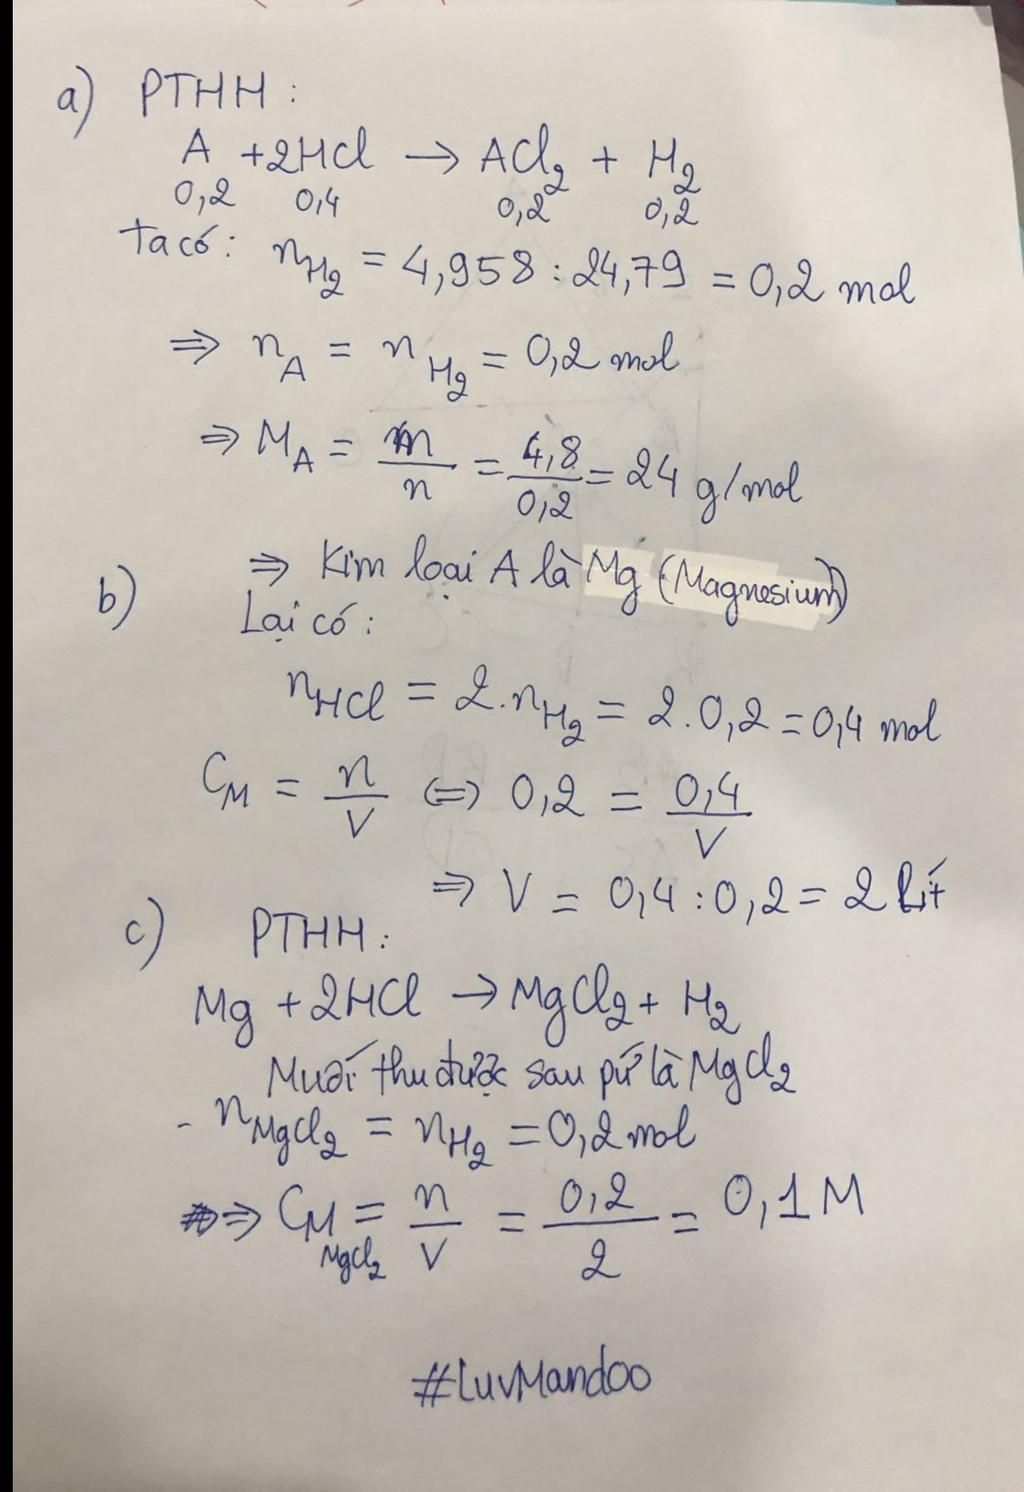 a) PTHH :
A + 2HCl → ACl₂ + H₂
0,2 0,4 0,2 0,2
Ta có : nH₂ = 4,958 : 24,79 = 0,2 mol
⇒ nA = nH₂ = 0,2 mol
⇒ MA = m/n = 4,8/0,2 = 24 g/mol
⇒ Kim loại A là Mg (Magnesium)
b) Lại có :
nHCl = 2.nH₂ = 2.0,2 = 0,4 mol
CM = n/V ⇔ 0,2 = 0,4/V
⇒ V = 0,4 : 0,2 = 2 lít
c) PTHH :
Mg + 2HCl → MgCl₂ + H₂
Muối thu được sau pứ là MgCl₂
- nMgCl₂ = nH₂ = 0,2 mol
⇒ CM MgCl₂ = n/V = 0,2/2 = 0,1 M
#LuvMandoo